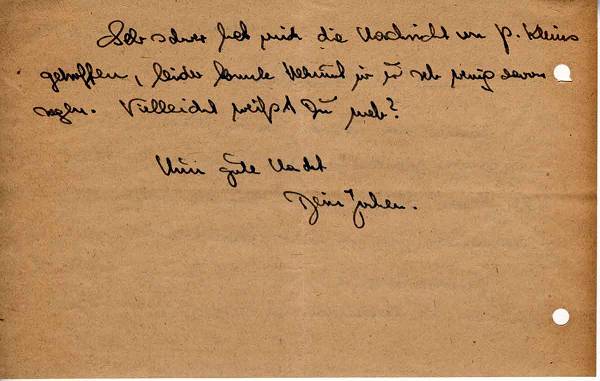 Sehr schwer hat mich die Nachricht von P. Kleins
getroffen, leider konnte Helmut mir nur sehr wenig davon
sagen. Vielleicht weißt Du mehr?
Nun gute Nacht
Dein Jochen.